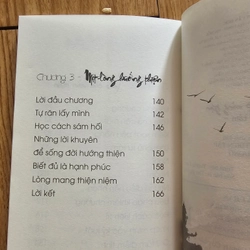 Chương 3 - Một lòng hướng thiện
Lời đầu chương 140
Tự răn lấy mình 142
Học cách sám hối 146
Những lời khuyên
để sống đời hướng thiện 150
Biết đủ là hạnh phúc 158
Lòng mang thiện niệm 162
Lời kết 166